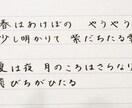 春はあけぼの　やうやう
少し明かりて　紫だちたる雲
夏は夜　月のころはさらな
飛びちがひたる